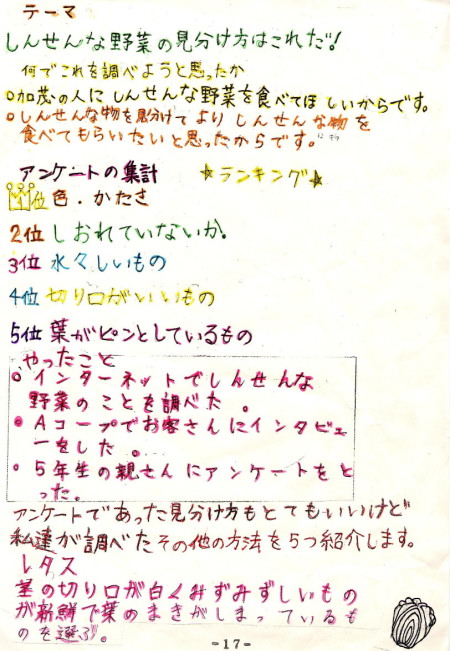 テーマ
しんせんな野菜の見分け方はこれだ!
何でこれを調べようと思ったか
○加茂の人にしんせんな野菜を食べてほしいからです。
○しんせんな物を見分けてよりしんせんな物を
食べてもらいたいと思ったからです。
アンケートの集計 ☆ランキング☆
1位 色・かたさ
2位 しおれていないか。
3位 水々しいもの
4位 切り口がいいもの
5位 葉がピンとしているもの
やったこと
○インターネットでしんせんな
野菜のことを調べた。
○Aコープでお客さんにインタビュ
ーをした。
○5年生の親さんにアンケートをと
った。
アンケートであった見分け方もとてもいいけど
私達が調べたその他の方法を5つ紹介します。
レタス
茎の切り口が白くみずみずしいもの
が新鮮で葉のまきがしまっているも
のを選ぶ。
-17-